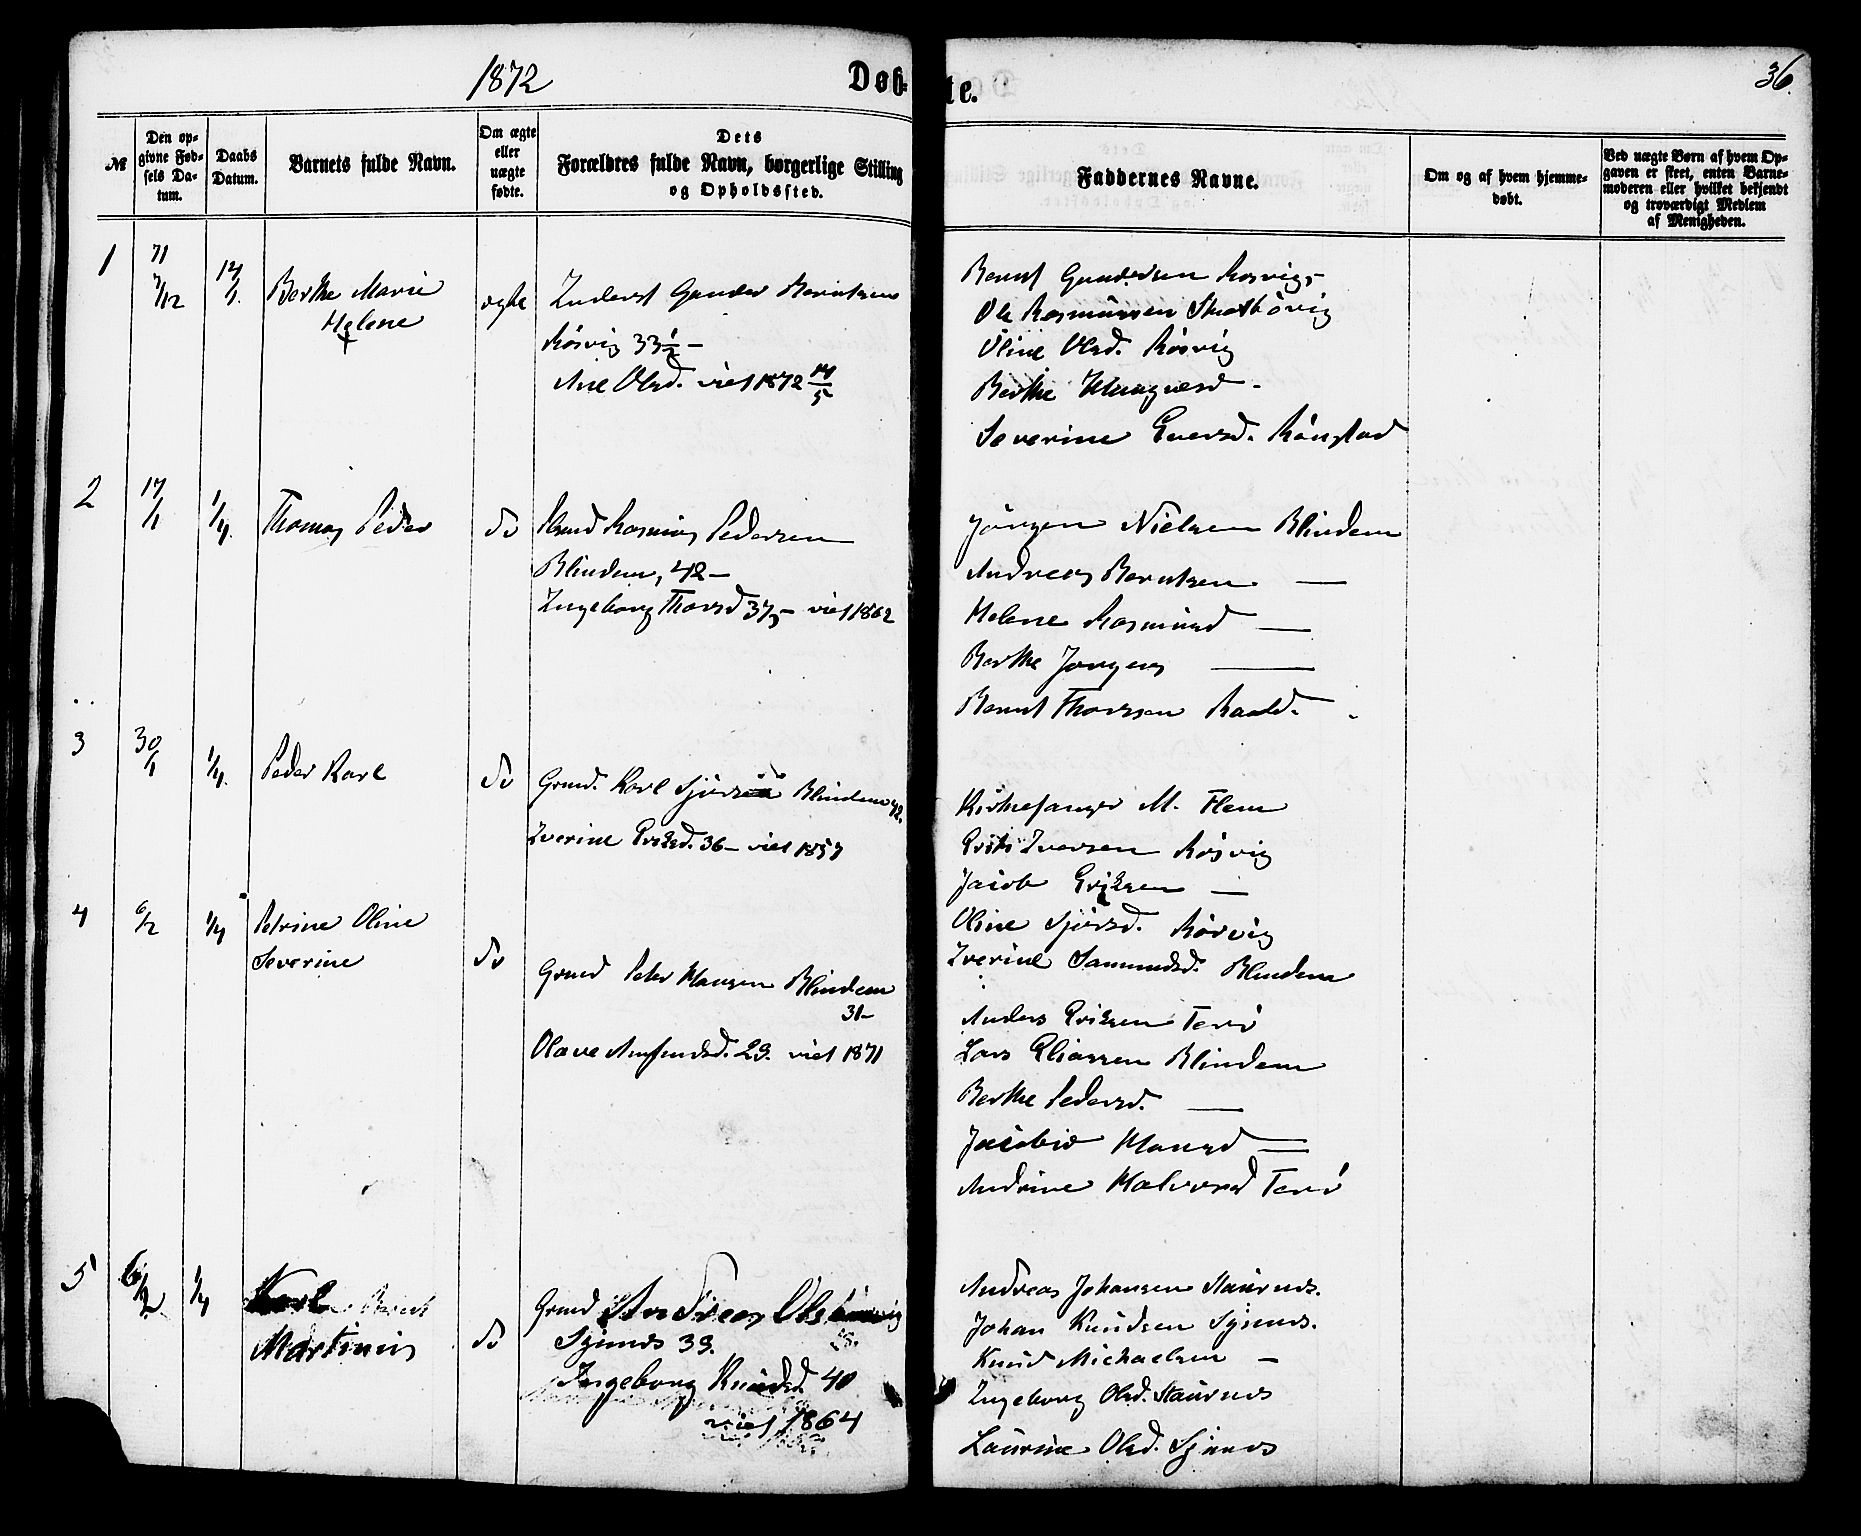 1872
Døb-
te.
36.
№
Den op-
givne Fød-
sels Da-
tum.
Daabs
Datum.
Barnets fulde Navn.
Om ægte
eller
uægte
fødte.
Dets
Forældres fulde Navn, borgerlige Stilling
og Opholdssted.
Faddernes Navne.
Om og af hvem hjemme-
døbt.
Ved uægte Børn af hvem Op-
gaven er skeet, enten Barne-
moderen eller hvilket bekjendt
og troværdigt Medlem
af Menigheden.
1
71
7/12
14/1.
Berthe Marie
Helene
ægte
Inderst Gunder Berntsen
Røsvig 33 1/2 –
Ane Olsd. viet 1872 14/5
Bernt Gundersen Røsvig
Ole Rasmussen
Oline Olsd. Røsvig
Berthe
Severine Iversd. Rønstad
2
17/1
1/4.
Thomas Peder
do
Rasmus Pedersen
Blindem, 42 –
Ingeborg Thorsd 37 – viet 1862
Jørgen Nielsen Blindem
Andreas Berntsen —
Helene Rasmusd —
Berthe Jørgens —
Bernt Thorssen
3
30/1
1/4.
Peder Karl
do
Grmd. Karl Blindem 42.
Iverine Eriksd. 36 – viet 1857
Kirkesanger M. Flem
Iversen Røsvig
Jacob Eriksen —
Oline Sjursd. Rørvig
Iverine Samundsd. Blindem
4
6/2
1/4
Petrine Oline
Severine
do
Grmd Peter Hansen Blindem
31 –
Olave 29. viet 1871
Anders Eriksen Terø
Lars Eliassen Blindem
Berthe Pedersd. —
Hansd —
Andrine Halvorsd Terø
5
6/2
1/4
Karl Bernt
Martinus
do
Grmd Andreas
39.
Ingeborg Knudsd. 40
viet 1864
Andreas Johansen Staurnes.
Johan Knudsen
Knud Michaelsen —
Ingeborg Olsd. Staurnes
Laurine Olsd.